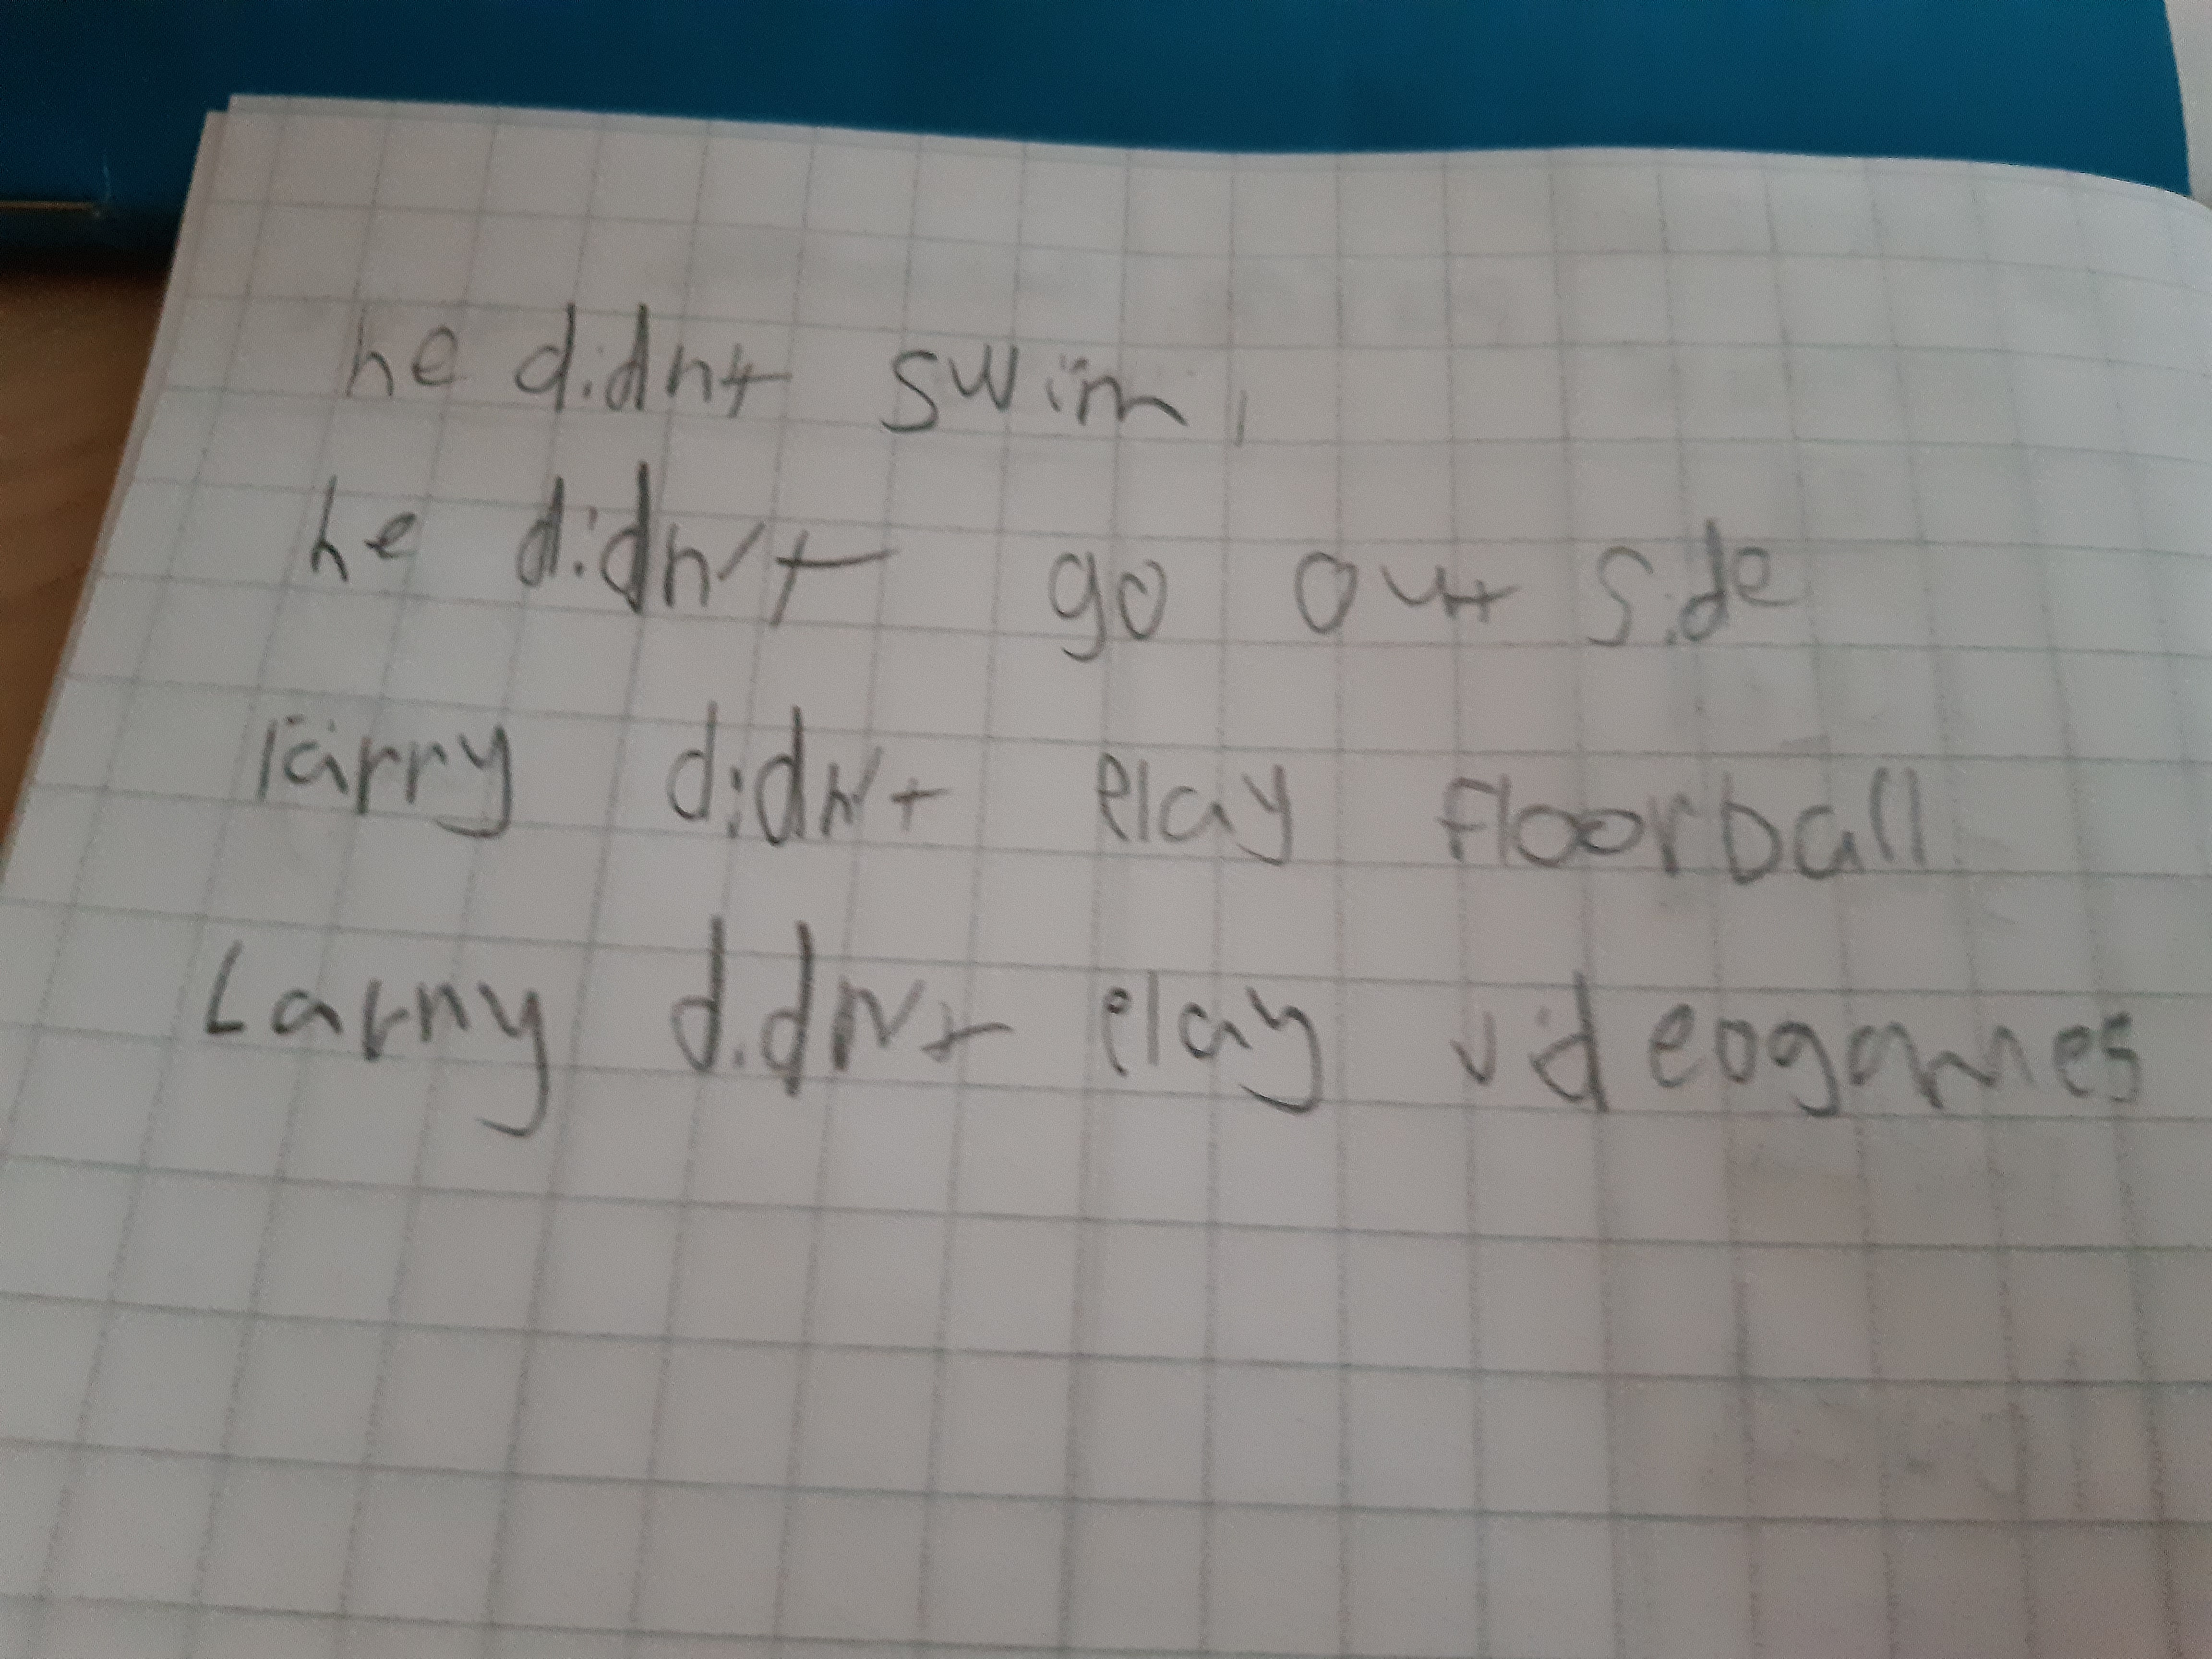 he didnt swim,
he didn't go out side
larry didn't play floorball
Larry didn't play videogames